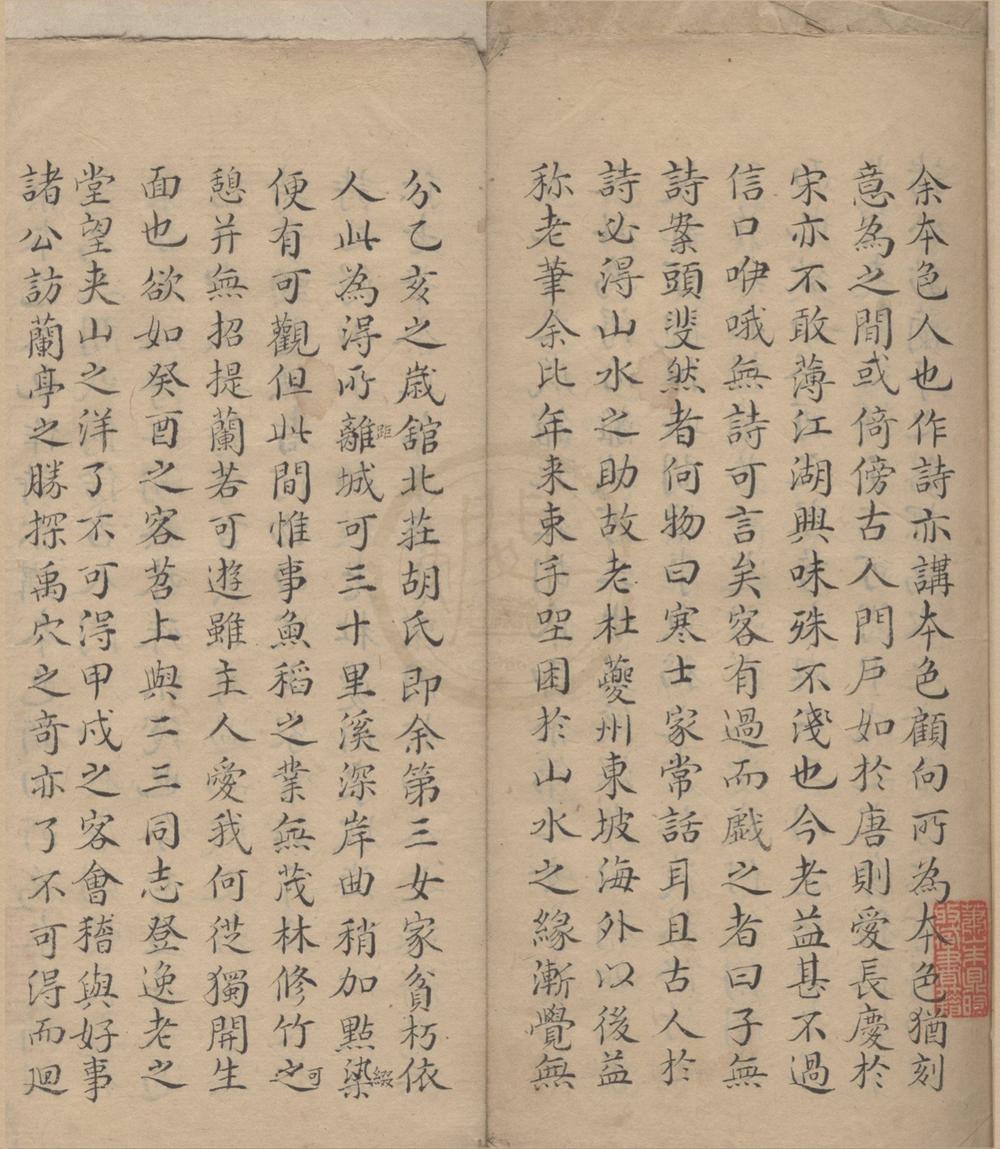 余本色人也作詩亦講本色顧向所為本色猶刻
意為之間或倚傍古人門戶如於唐則愛長慶於
宋亦不敢薄江湖興味殊不淺也今老益甚不過
信口咿哦無詩可言矣客有過而戲之者曰子無
詩案頭斐然者何物曰寒士家常話耳且古人於
詩必得山水之助故老杜夔州東坡海外以後益
称老筆余比年来束手坐困於山水之緣漸覺無
分乙亥之歲舘北莊胡氏即余第三女家貧朽依
人此為得所離距城可三十里溪深岸曲稍加點染綴
便有可觀但此間惟事魚稻之業無茂林修竹之可
憩并無招提蘭若可遊雖主人愛我何從獨開生
面也欲如癸酉之客苕上與二三同志登逸老之
堂望夹山之洋了不可得甲戌之客會稽與好事
諸公訪蘭亭之勝探禹穴之奇亦了不可得而廻
蕭山朱鼎煦
收藏書籍